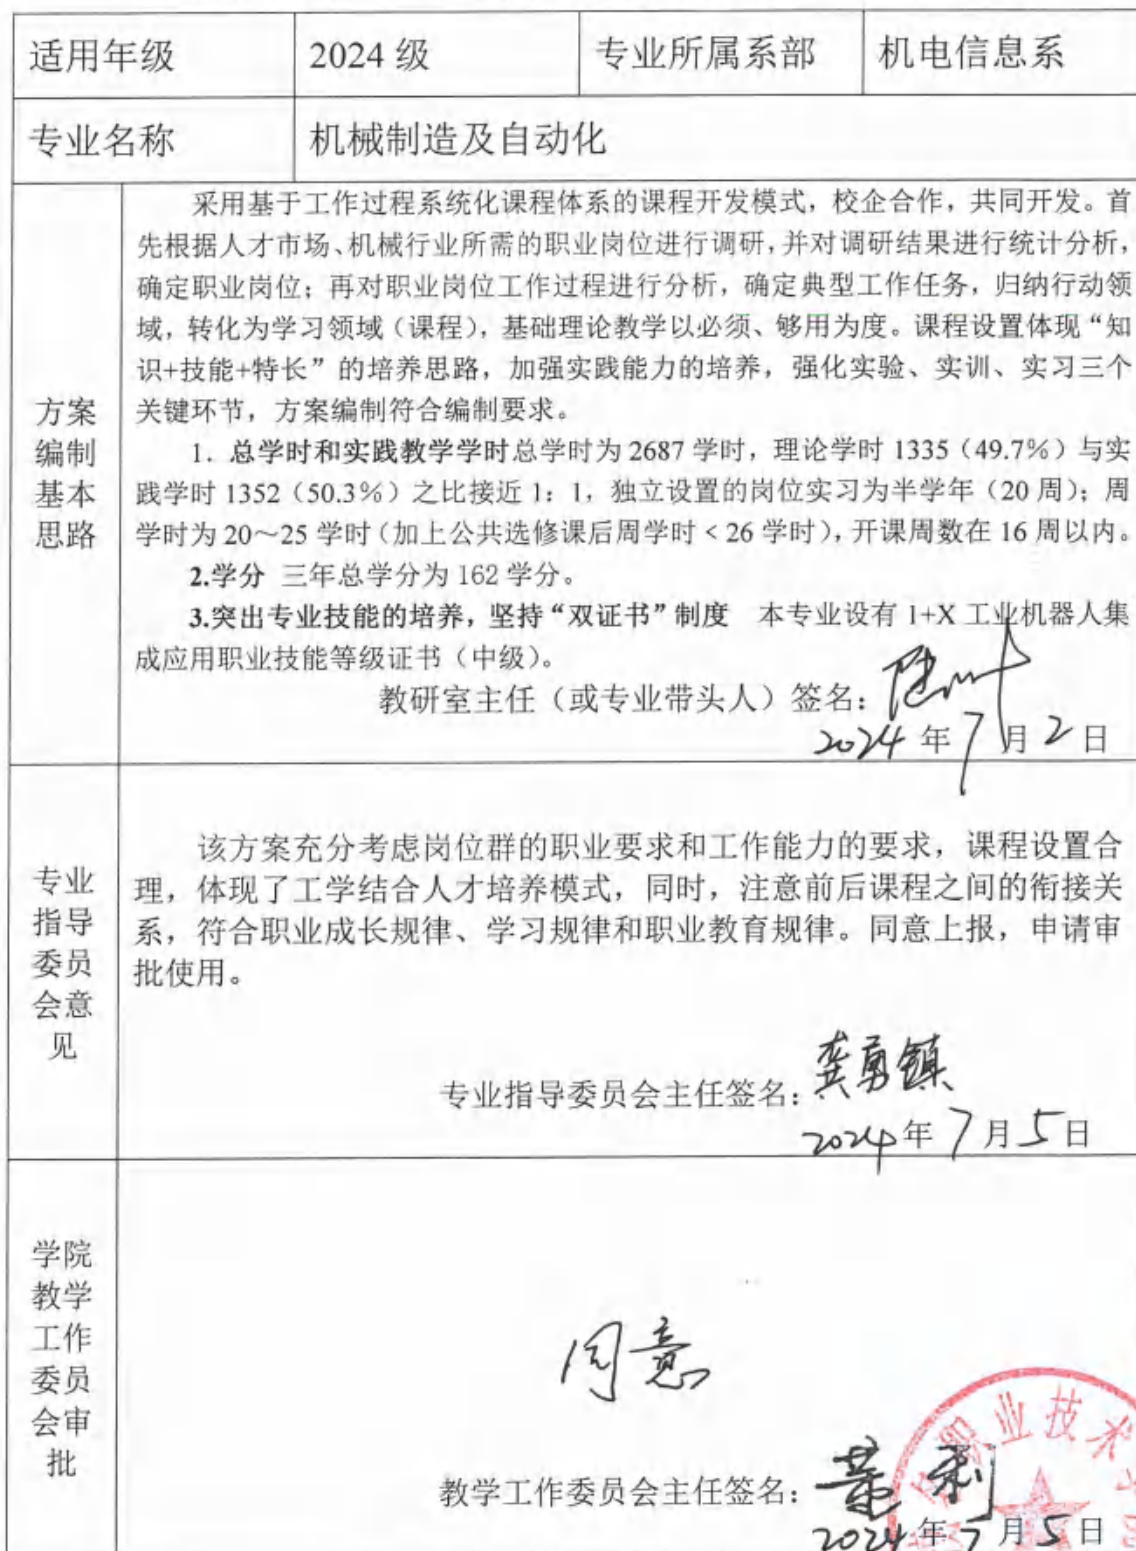 适用年级 2024 级 专业所属系部 机电信息系
专业名称 机械制造及自动化
方案
编制
基本
思路
采用基于工作过程系统化课程体系的课程开发模式，校企合作，共同开发。首
先根据人才市场、机械行业所需的职业岗位进行调研，并对调研结果进行统计分析，
确定职业岗位；再对职业岗位工作过程进行分析，确定典型工作任务，归纳行动领
域，转化为学习领域（课程），基础理论教学以必须、够用为度。课程设置体现“知
识+技能+特长”的培养思路，加强实践能力的培养，强化实验、实训、实习三个
关键环节，方案编制符合编制要求。
1. 总学时和实践教学学时总学时为 2687 学时，理论学时 1335（49.7%）与实
践学时 1352（50.3%）之比接近 1：1，独立设置的岗位实习为半学年（20 周）；周
学时为 20～25 学时（加上公共选修课后周学时 < 26 学时），开课周数在 16 周以内。
2.学分 三年总学分为 162 学分。
3.突出专业技能的培养，坚持“双证书”制度 本专业设有 1+X 工业机器人集
成应用职业技能等级证书（中级）。
教研室主任（或专业带头人）签名：
2024 年 7 月 2 日
专业
指导
委员
会意
见
该方案充分考虑岗位群的职业要求和工作能力的要求，课程设置合
理，体现了工学结合人才培养模式，同时，注意前后课程之间的衔接关
系，符合职业成长规律、学习规律和职业教育规律。同意上报，申请审
批使用。
专业指导委员会主任签名：龚勇镇
2024 年 7 月 5 日
学院
教学
工作
委员
会审
批
同意
教学工作委员会主任签名：
2024 年 7 月 5 日
职业技术